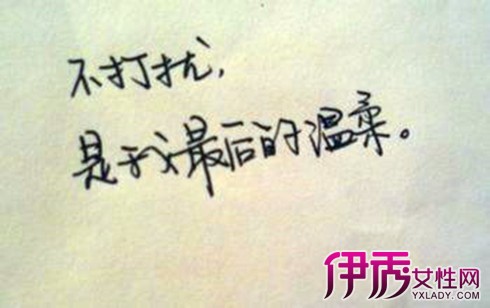 不打扰,
是我最后的温柔。
伊秀女性网
YXLADY.COM